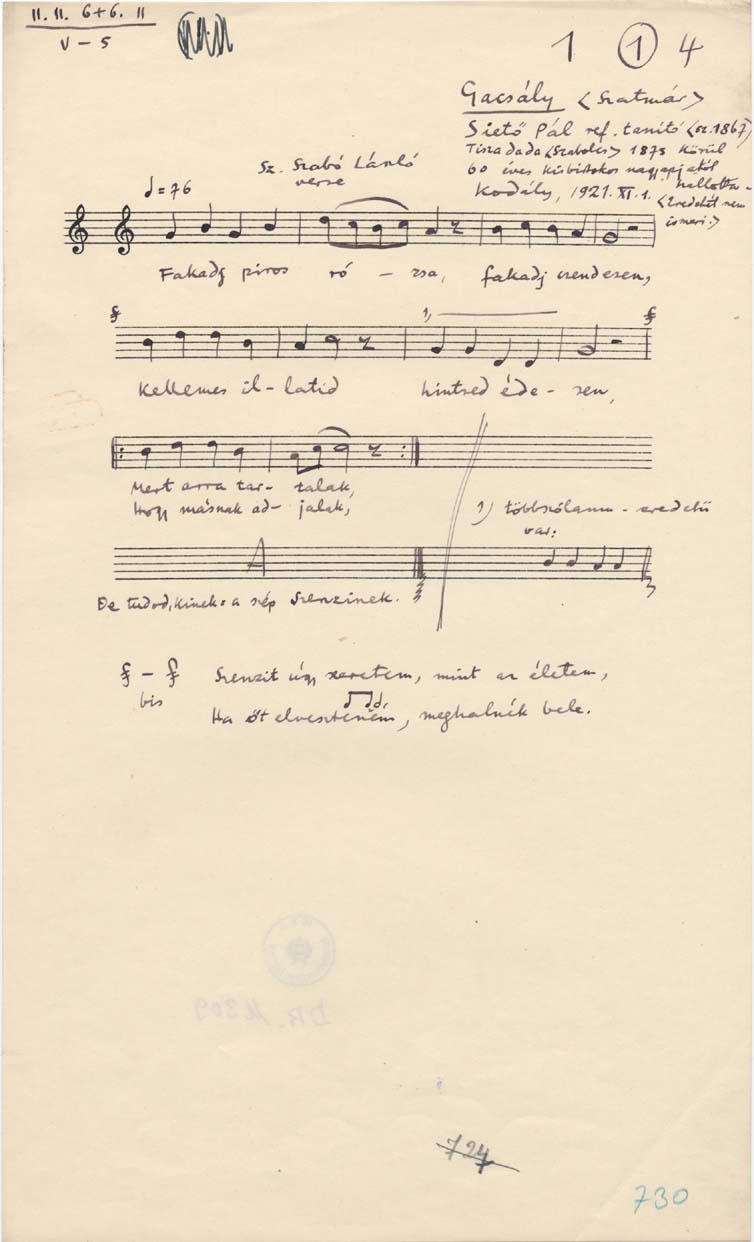 11. 11. 6+6. 11
V – 5
1 1 4
Gacsály <Szatmár>
Sietö Pál ref. tanító <sz. 1867>
Tiszadada <Szabolcs> 1875 körül
60 éves kisbirtokos nagyapjától
hallotta.
Kodály, 1921. XI. 1. <Eredetét nem
ismeri.>
Sz. Szabó László
verse
= 76
Fakadj piros ró – zsa, fakadj csendesen,
1,
Kellemes il – latid hintsed éde – sen,
Mert arra tar – talak,
Hogy másnak ad – jalak,
1) többszólamú – eredetü
var:
A
De tudod, kinek: a szép Szenzinek.
– Szenzit úgy szeretem, mint az életem,
bis
Ha öt elveszteném, meghalnék bele.
DR. 11309
724
730